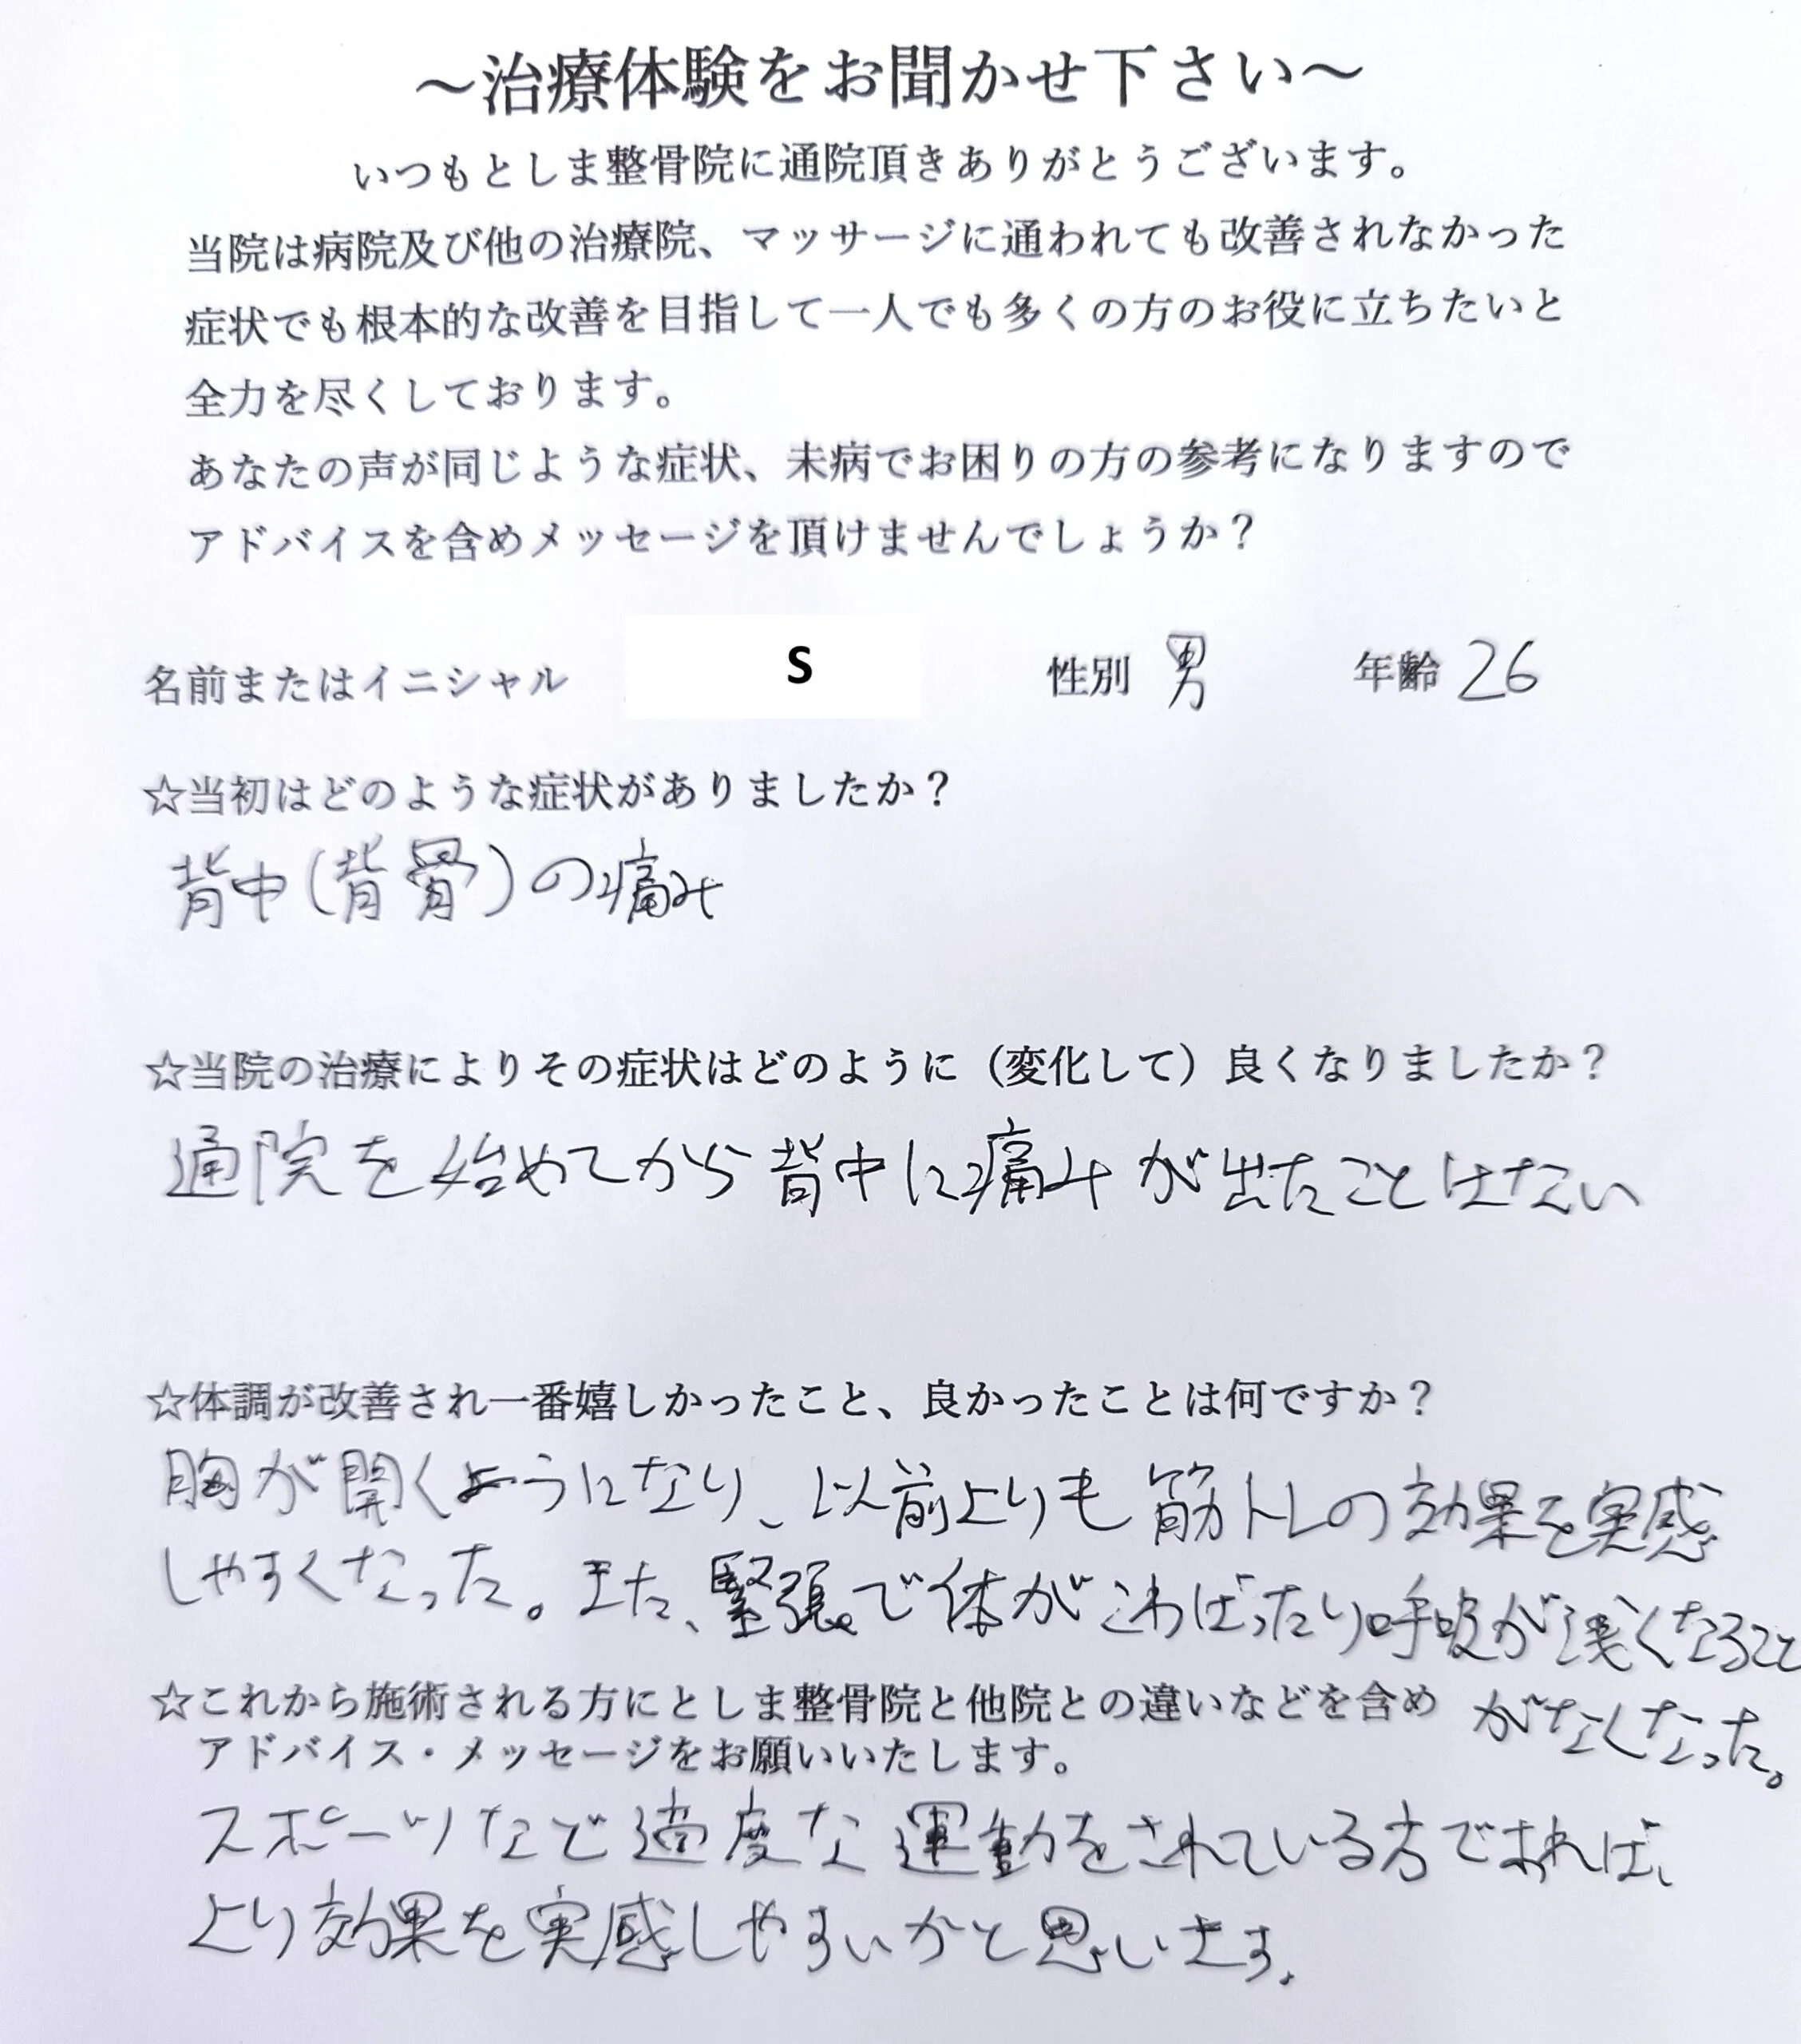 ～治療体験をお聞かせ下さい～
いつもとしま整骨院に通院頂きありがとうございます。
当院は病院及び他の治療院、マッサージに通われても改善されなかった
症状でも根本的な改善を目指して一人でも多くの方のお役に立ちたいと
全力を尽くしております。
あなたの声が同じような症状、未病でお困りの方の参考になりますので
アドバイスを含めメッセージを頂けませんでしょうか？
名前またはイニシャル S 性別 男 年齢 26
☆当初はどのような症状がありましたか？
背中(背骨)の痛み
☆当院の治療によりその症状はどのように（変化して）良くなりましたか？
通院を始めてから背中に痛みが出たことはない
☆体調が改善され一番嬉しかったこと、良かったことは何ですか？
胸が開くようになり、以前よりも筋トレの効果を実感
しやすくなった。また、緊張で体がこわばったり呼吸が浅くなること
がなくなった。
☆これから施術される方にとしま整骨院と他院との違いなどを含め
アドバイス・メッセージをお願いいたします。
スポーツなど適度な運動をされている方であれば、
より効果を実感しやすいかと思います。